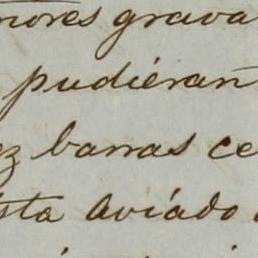 mores grava
pudiéran
ez barras ce
sta aviádo